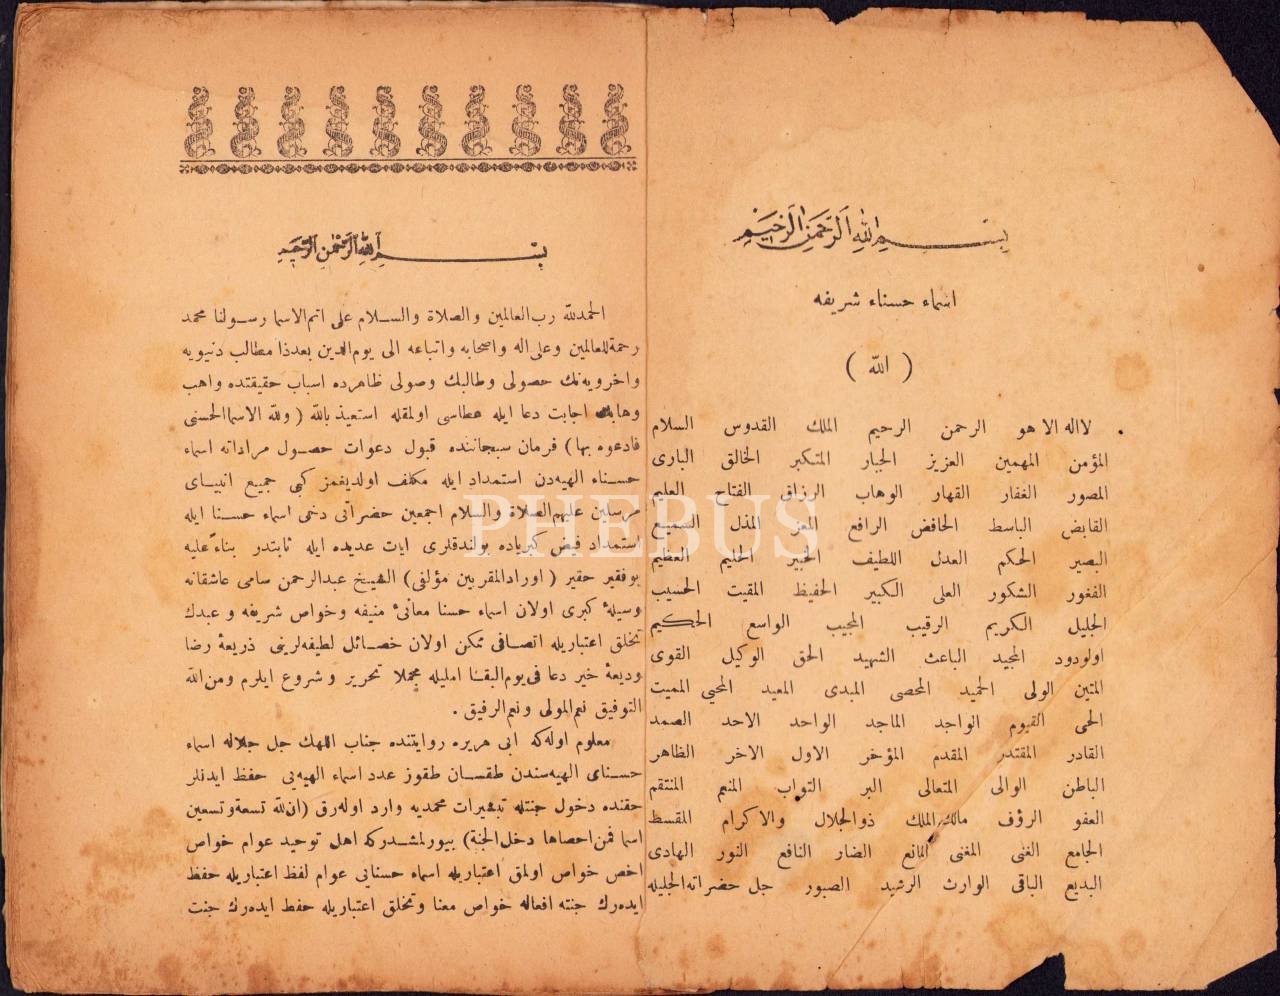 بسم الله الرحمن الرحيم
اسماء حسناء شريفه
( الله )
لااله الا هو الرحمن الرحيم الملك القدوس السلام
المؤمن المهيمن العزيز الجبار المتكبر الخالق البارى
المصور الغفار القهار الوهاب الرزاق الفتاح العليم
القابض الباسط الخافض الرافع المعز المذل السميع
البصير الحكم العدل اللطيف الخبير الحليم العظيم
الغفور الشكور العلى الكبير الحفيظ المقيت الحسيب
الجليل الكريم الرقيب المجيب الواسع الحكيم
اولودود المجيد الباعث الشهيد الحق الوكيل القوى
المتين الولى الحميد المحصى المبدى المعيد المحيى المميت
الحى القيوم الواجد الماجد الواحد الاحد الصمد
القادر المقتدر المقدم المؤخر الاول الاخر الظاهر
الباطن الوالى المتعالى البر التواب المنعم المنتقم
العفو الرؤف مالك الملك ذوالجلال والاكرام المقسط
الجامع الغنى المغنى المانع الضار النافع النور الهادى
البديع الباقى الوارث الرشيد الصبور جل حضراته الجليله
بسم الله الرحمن الرحيم
الحمدلله رب العالمين والصلاة والسلام على اتم الاسما رسولنا محمد
رحمة للعالمين وعلى اله واصحابه واتباعه الى يوم الدين بعدذا مطالب دنيويه
واخرويه نك حصولى وطالبك وصولى ظاهرده اسباب حقيقتده واهب
اجابت دعا ايله عطاسى اولمقله استعيذ بالله ( ولله الاسماالحسنى
فادعوه بها ) فرمان سبحاننده قبول دعوات حصول مراداته اسماء
حسناء الهيه دن استمداد ايله مكلف اولديغمز كبى جميع انبياى
مرسلين عليهم الصلاة والسلام اجمعين حضراتى دخى اسماء حسنا ايله
استمداد فيض كبرياده بولندقلرى ايات عديده ايله ثابتدر بناء عليه
بوفقير حقير ( اوراد المقربين مؤلفى ) الشيخ عبدالرحمن سامى عاشقانه
وسيلهٔ كبرى اولان اسماء حسنا معانئ منيفه وخواص شريفه و عبدك
تخلق اعتباريله اتصافى ممكن اولان خصائل لطيفه لرينى ذريعهٔ رضا
وديعهٔ خير دعا فى يوم البقا امليله مجملا تحرير و شروع ايلرم ومن الله
التوفيق نعم المولى ونعم الرفيق .
معلوم اوله كه ابى هريره روايتنده جناب اللهك جل جلاله اسماء
حسناى الهيه سندن طقسان طقوز عدد اسماء الهيه يى حفظ ايدنلر
حقنده دخول جنتله تبشيرات محمديه وارد اوله رق ( ان لله تسعة وتسعين
اسما فمن احصاها دخل الجنة ) بيورلمشدركه اهل توحيد عوام خواص
اخص خواص اولمق اعتباريله اسماء حسنايى عوام لفظ اعتباريله حفظ
ايده رك جنته افعاله خواص معنا وتخلق اعتباريله حفط ايده رك جنت
PHEBUS